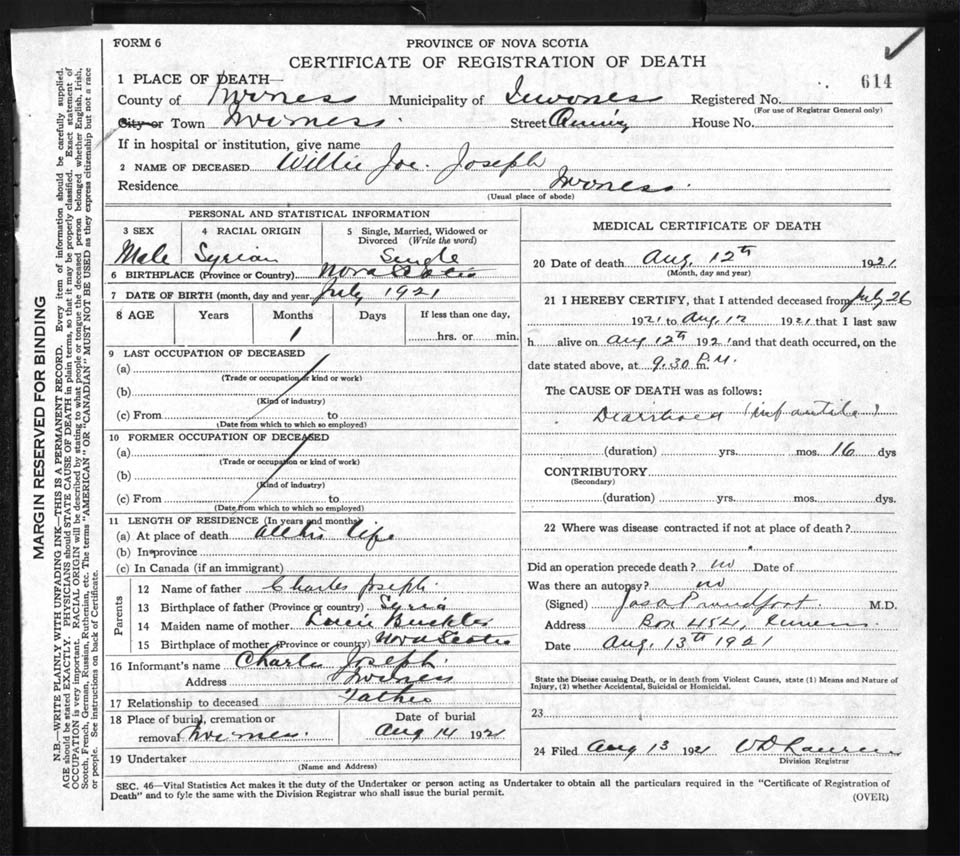 FORM 6
PROVINCE OF NOVA SCOTIA
CERTIFICATE OF REGISTRATION OF DEATH
614
1 PLACE OF DEATH—
County of Inverness Municipality of Inverness Registered No.
(For use of Registrar General only)
City or Town Inverness. Street House No.
If in hospital or institution, give name
2 NAME OF DECEASED Willie Joe. Joseph
Residence Inverness.
(Usual place of abode)
PERSONAL AND STATISTICAL INFORMATION
3 SEX 4 RACIAL ORIGIN 5 Single, Married, Widowed or Divorced (Write the word)
Male Syrian Single
6 BIRTHPLACE (Province or Country) Nova Scotia
7 DATE OF BIRTH (month, day and year July 1921
8 AGE Years Months Days If less than one day,
1 hrs. or min.
9 LAST OCCUPATION OF DECEASED
(a)
(Trade or occupation or kind or work)
(b)
(Kind of industry)
(c) From to
(Date from which to which so employed)
10 FORMER OCCUPATION OF DECEASED
(a)
(Trade or occupation or kind of work)
(b)
(Kind of industry)
(c) From to
(Date from which to which so employed)
11 LENGTH OF RESIDENCE (In years and months)
(a) At place of death all his life
(b) In province
(c) In Canada (if an immigrant)
Parents
12 Name of father Charles Joseph.
13 Birthplace of father (Province or country) Syria
14 Maiden name of mother
15 Birthplace of mother (Province or county) Nova Scotia
16 Informant's name Charles Joseph.
Address Inverness
17 Relationship to deceased Father
18 Place of burial, cremation or Date of burial
removal Inverness. Aug 14 1921
19 Undertaker
(Name and Address)
MEDICAL CERTIFICATE OF DEATH
20 Date of death Aug. 12th 1921
(Month, day and year)
21 I HEREBY CERTIFY, that I attended deceased from July 26
1921 to Aug 12 1921 that I last saw
h alive on Aug 12th 1921 and that death occurred, on the
date stated above, at 9.30 P.M.
The CAUSE OF DEATH was as follows:
Diarrhoea (infantile)
(duration) yrs. mos. 16 dys
CONTRIBUTORY
(Secondary)
(duration) yrs. mos. dys.
22 Where was disease contracted if not at place of death?
Did an operation precede death? no Date of
Was there an autopsy? no
(Signed) Jas A Proudfoot. M.D.
Address Box 454, Inverness.
Date Aug. 13th 1921
State the Disease causing Death, or in death from Violent Causes, state (1) Means and Nature of
Injury, (2) whether Accidental, Suicidal or Homicidal.
23
24 Filed Aug 13 1921
Division Registrar
SEC. 46—Vital Statistics Act makes it the duty of the Undertaker or person acting as Undertaker to obtain all the particulars required in the "Certificate of Registration of
Death" and to fyle the same with the Division Registrar who shall issue the burial permit.
(OVER)
MARGIN RESERVED FOR BINDING
N.B.—WRITE PLAINLY WITH UNFADING INK—THIS IS A PERMANENT RECORD. Every item of information should be carefully supplied.
AGE should be stated EXACTLY. PHYSICIANS should STATE CAUSE OF DEATH in plain terms, so that it may be properly classified. Exact statement of
OCCUPATION is very important. RACIAL ORIGIN will be described by stating to what people or tongue the deceased person belonged whether English, Irish,
Scotch, French, German, Russian, Ruthenian, etc. The terms "AMERICAN" OR "CANADIAN" MUST NOT BE USED as they express citizenship but not a race
or people. See instructions on back of Certificate.